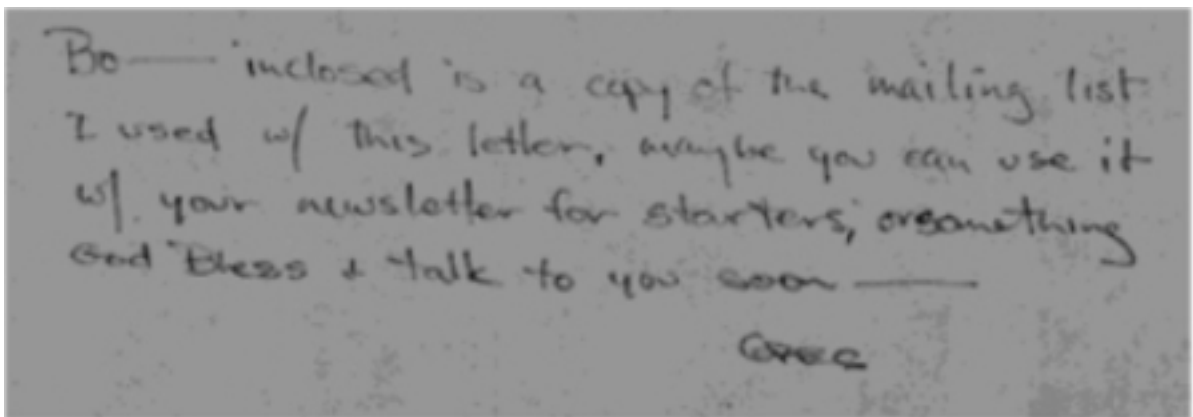 Bo — inclosed is a copy of the mailing list
I used w/ this letter, maybe you can use it
w/ your newsletter for starters, or something
God Bless & talk to you soon —
Greg